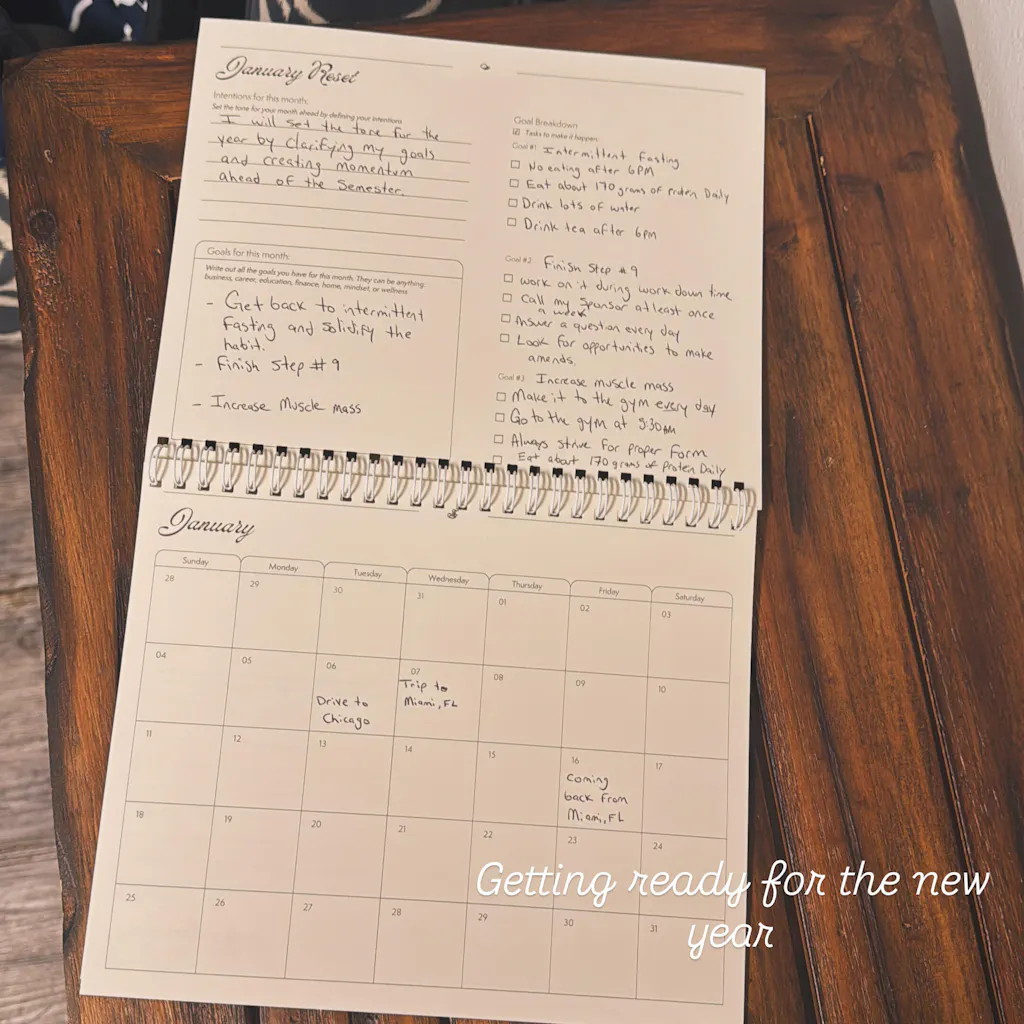 January Reset
Intentions for this month:
Set the tone for your month ahead by defining your intentions
I will set the tone for the
year by clarifying my goals
and creating momentum
ahead of the Semester.
Goals for this month:
Write out all the goals you have for this month. They can be anything:
business, career, education, finance, home, mindset, or wellness
- Get back to intermittent
fasting and solidify the
habit.
- Finish Step #9
- Increase Muscle mass
Goal Breakdown
Tasks to make it happen
Goal #1 Intermittent Fasting
No eating after 6PM
Eat about 170 grams of protien Daily
Drink lots of water
Drink tea after 6pm
Goal #2 Finish Step #9
work on it during work down time
Call my Sponsor at least once
a week
Answer a question every day
Look for opportunities to make
amends.
Goal #3 Increase muscle mass
Make it to the gym every day
Go to the gym at 5:30AM
Always strive For proper Form
Eat about 170 grams of protein Daily
January
Sunday Monday Tuesday Wednesday Thursday Friday Saturday
28 29 30 31 01 02 03
04 05 06 07 08 09 10
Drive to
Chicago
Trip to
Miami, FL
11 12 13 14 15 16 17
Coming
back from
Miami, FL
18 19 20 21 22 23 24
25 26 27 28 29 30 31
Getting ready for the new
year